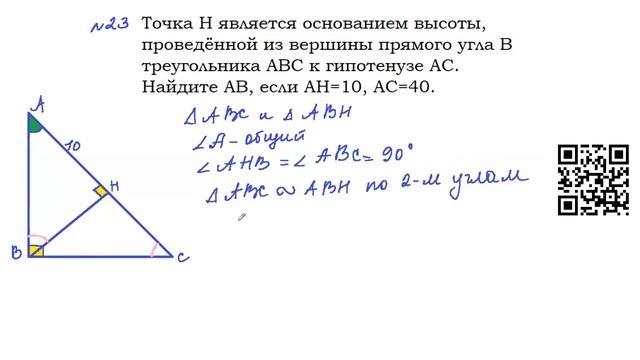 №23 Точка H является основанием высоты,
проведённой из вершины прямого угла B
треугольника ABC к гипотенузе AC.
Найдите AB, если AH=10, AC=40.
Δ ABC и Δ ABH
∠A - общий
∠ AHB = ∠ ABC = 90°
Δ ABC ∾ ABH по 2-м углам
A
10
H
B
C